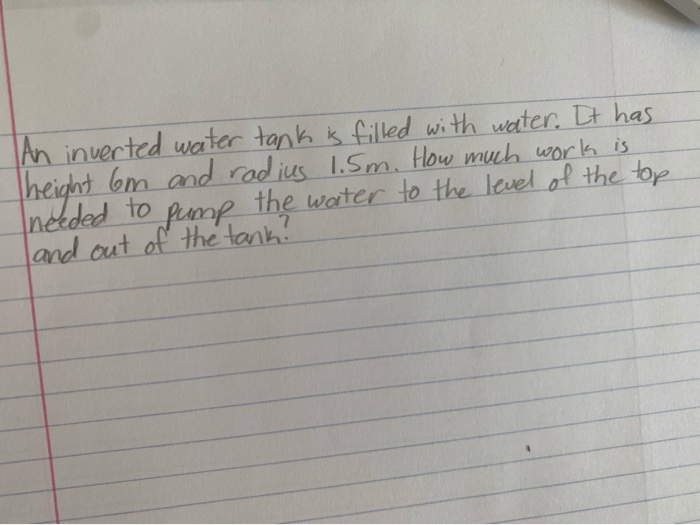 An inverted water tank is filled with water. It has
height 6m and radius 1.5m. How much work is
needed to pump the water to the level of the top
and out of the tank?